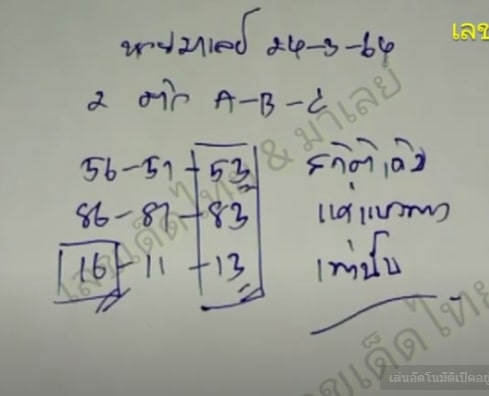 เลข
หวยมาเลย์ 24-3-64
2 ตัว A-B-C
56-51-53 สถิติเดิม
86-81-83
16-11-13 เท่านั้น
เลขเด็ดไทย & มาเลย์
เลขเด็ดไทย
เล่นอัตโนมัติเปิดอยู่